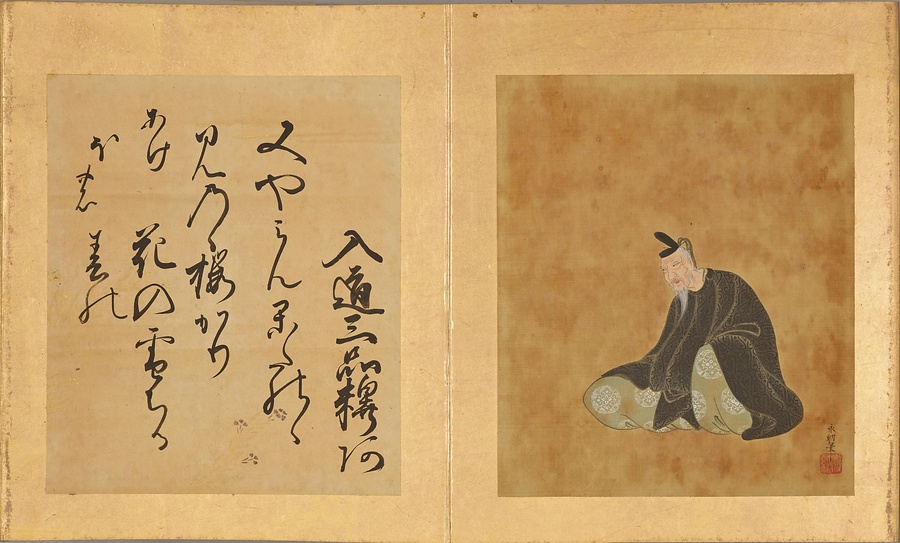 入道三品釋阿
又やみんかたのゝ
みのゝ桜かり
花の雪ちる
春の
あけ
ほの
永納筆